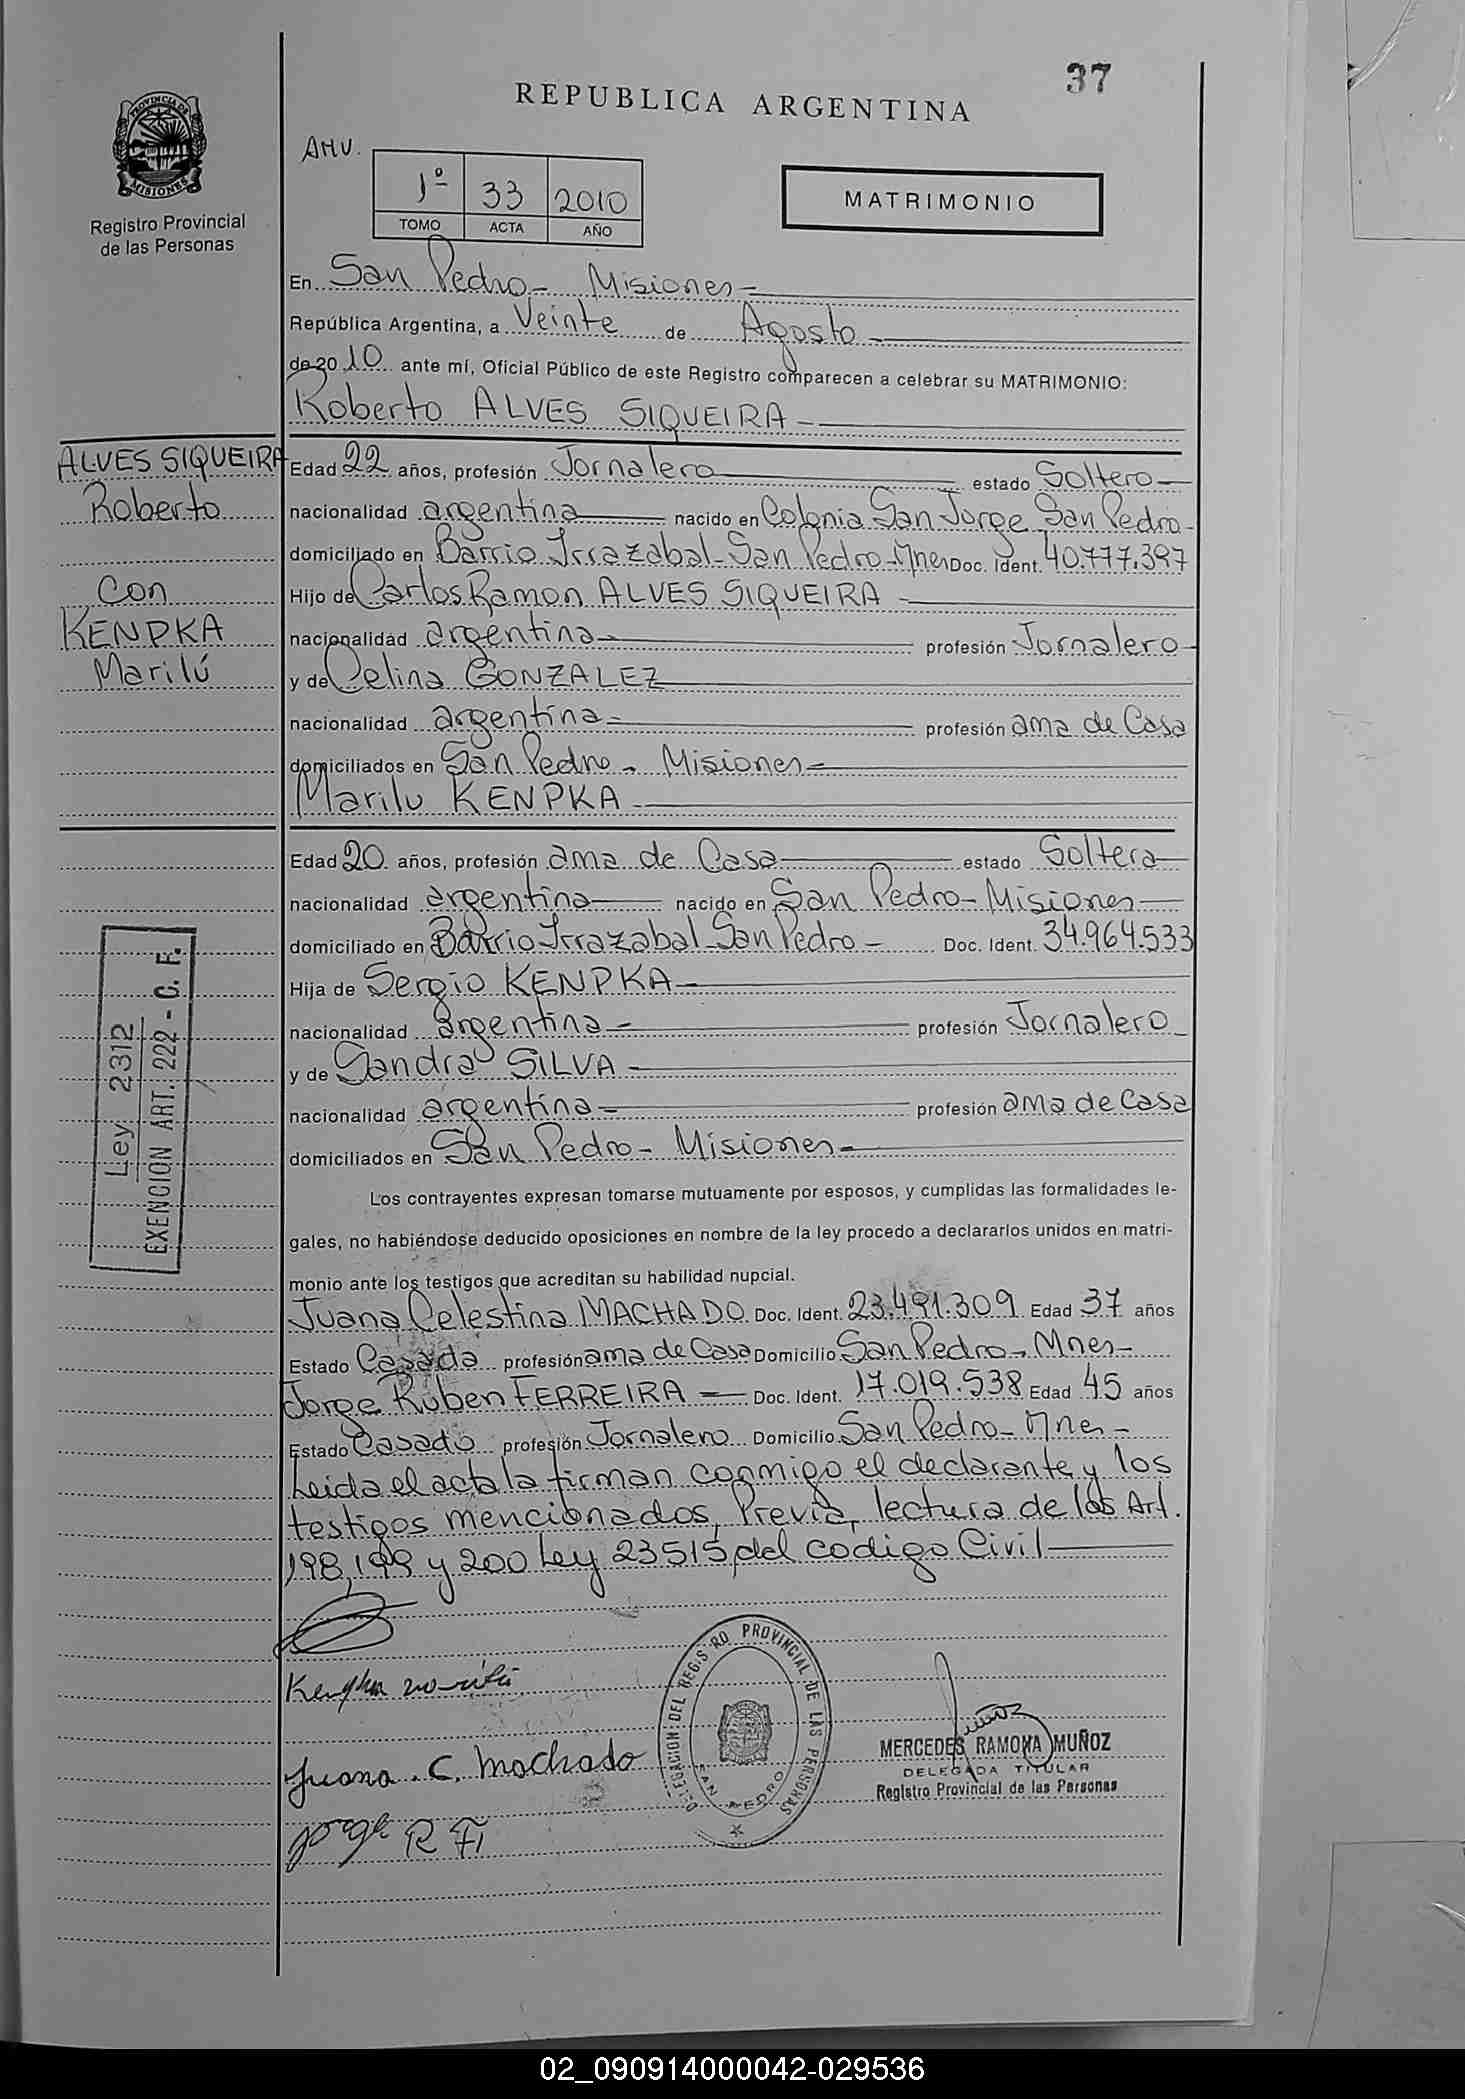 37
REPUBLICA ARGENTINA
PROVINCIA DE
MISIONES
Registro Provincial
de las Personas
AMU.
1º 33 2010
TOMO ACTA AÑO
MATRIMONIO
En San Pedro - Misiones -
República Argentina, a Veinte de Agosto
de 2010 ante mí, Oficial Público de este Registro comparecen a celebrar su MATRIMONIO:
Roberto ALVES SIQUEIRA
ALVES SIQUEIRA
Roberto
Con
KENPKA
Marilú
Edad 22 años, profesión Jornalero estado Soltero
nacionalidad argentina nacido en Colonia San Jorge San Pedro
domiciliado en Barrio Irrazabal - San Pedro - Mnes Doc. Ident. 40.777.397
Hijo de Carlos Ramon ALVES SIQUEIRA
nacionalidad argentina profesión Jornalero
y de Celina GONZALEZ
nacionalidad argentina profesión ama de Casa
domiciliados en San Pedro - Misiones
Marilu KENPKA
Edad 20 años, profesión ama de Casa estado Soltera
nacionalidad argentina nacido en San Pedro - Misiones
domiciliado en Barrio Irrazabal - San Pedro - Doc. Ident. 34.964.533
Hija de Sergio KENPKA
nacionalidad argentina profesión Jornalero
y de Sandra SILVA
nacionalidad argentina profesión ama de casa
domiciliados en San Pedro - Misiones
Ley 2312
EXENCION ART. 222 - C. F.
Los contrayentes expresan tomarse mutuamente por esposos, y cumplidas las formalidades le-
gales, no habiéndose deducido oposiciones en nombre de la ley procedo a declararlos unidos en matri-
monio ante los testigos que acreditan su habilidad nupcial.
Juana Celestina MACHADO Doc. Ident. 23.491.309 Edad 37 años
Estado Casada profesión ama de Casa Domicilio San Pedro - Mnes -
Jorge Ruben FERREIRA Doc. Ident. 17.019.538 Edad 45 años
Estado Casado profesión Jornalero Domicilio San Pedro - Mnes -
Leida el acta la firman conmigo el declarante y los
testigos mencionados, Previa, lectura de los Art.
198, 199 y 200 Ley 23515 del codigo Civil
Juana. C. Machado
DELEGACION DEL REGISTRO PROVINCIAL DE LAS PERSONAS
SAN PEDRO
MERCEDES RAMONA MUÑOZ
DELEGADA TITULAR
Registro Provincial de las Personas
02_090914000042-029536